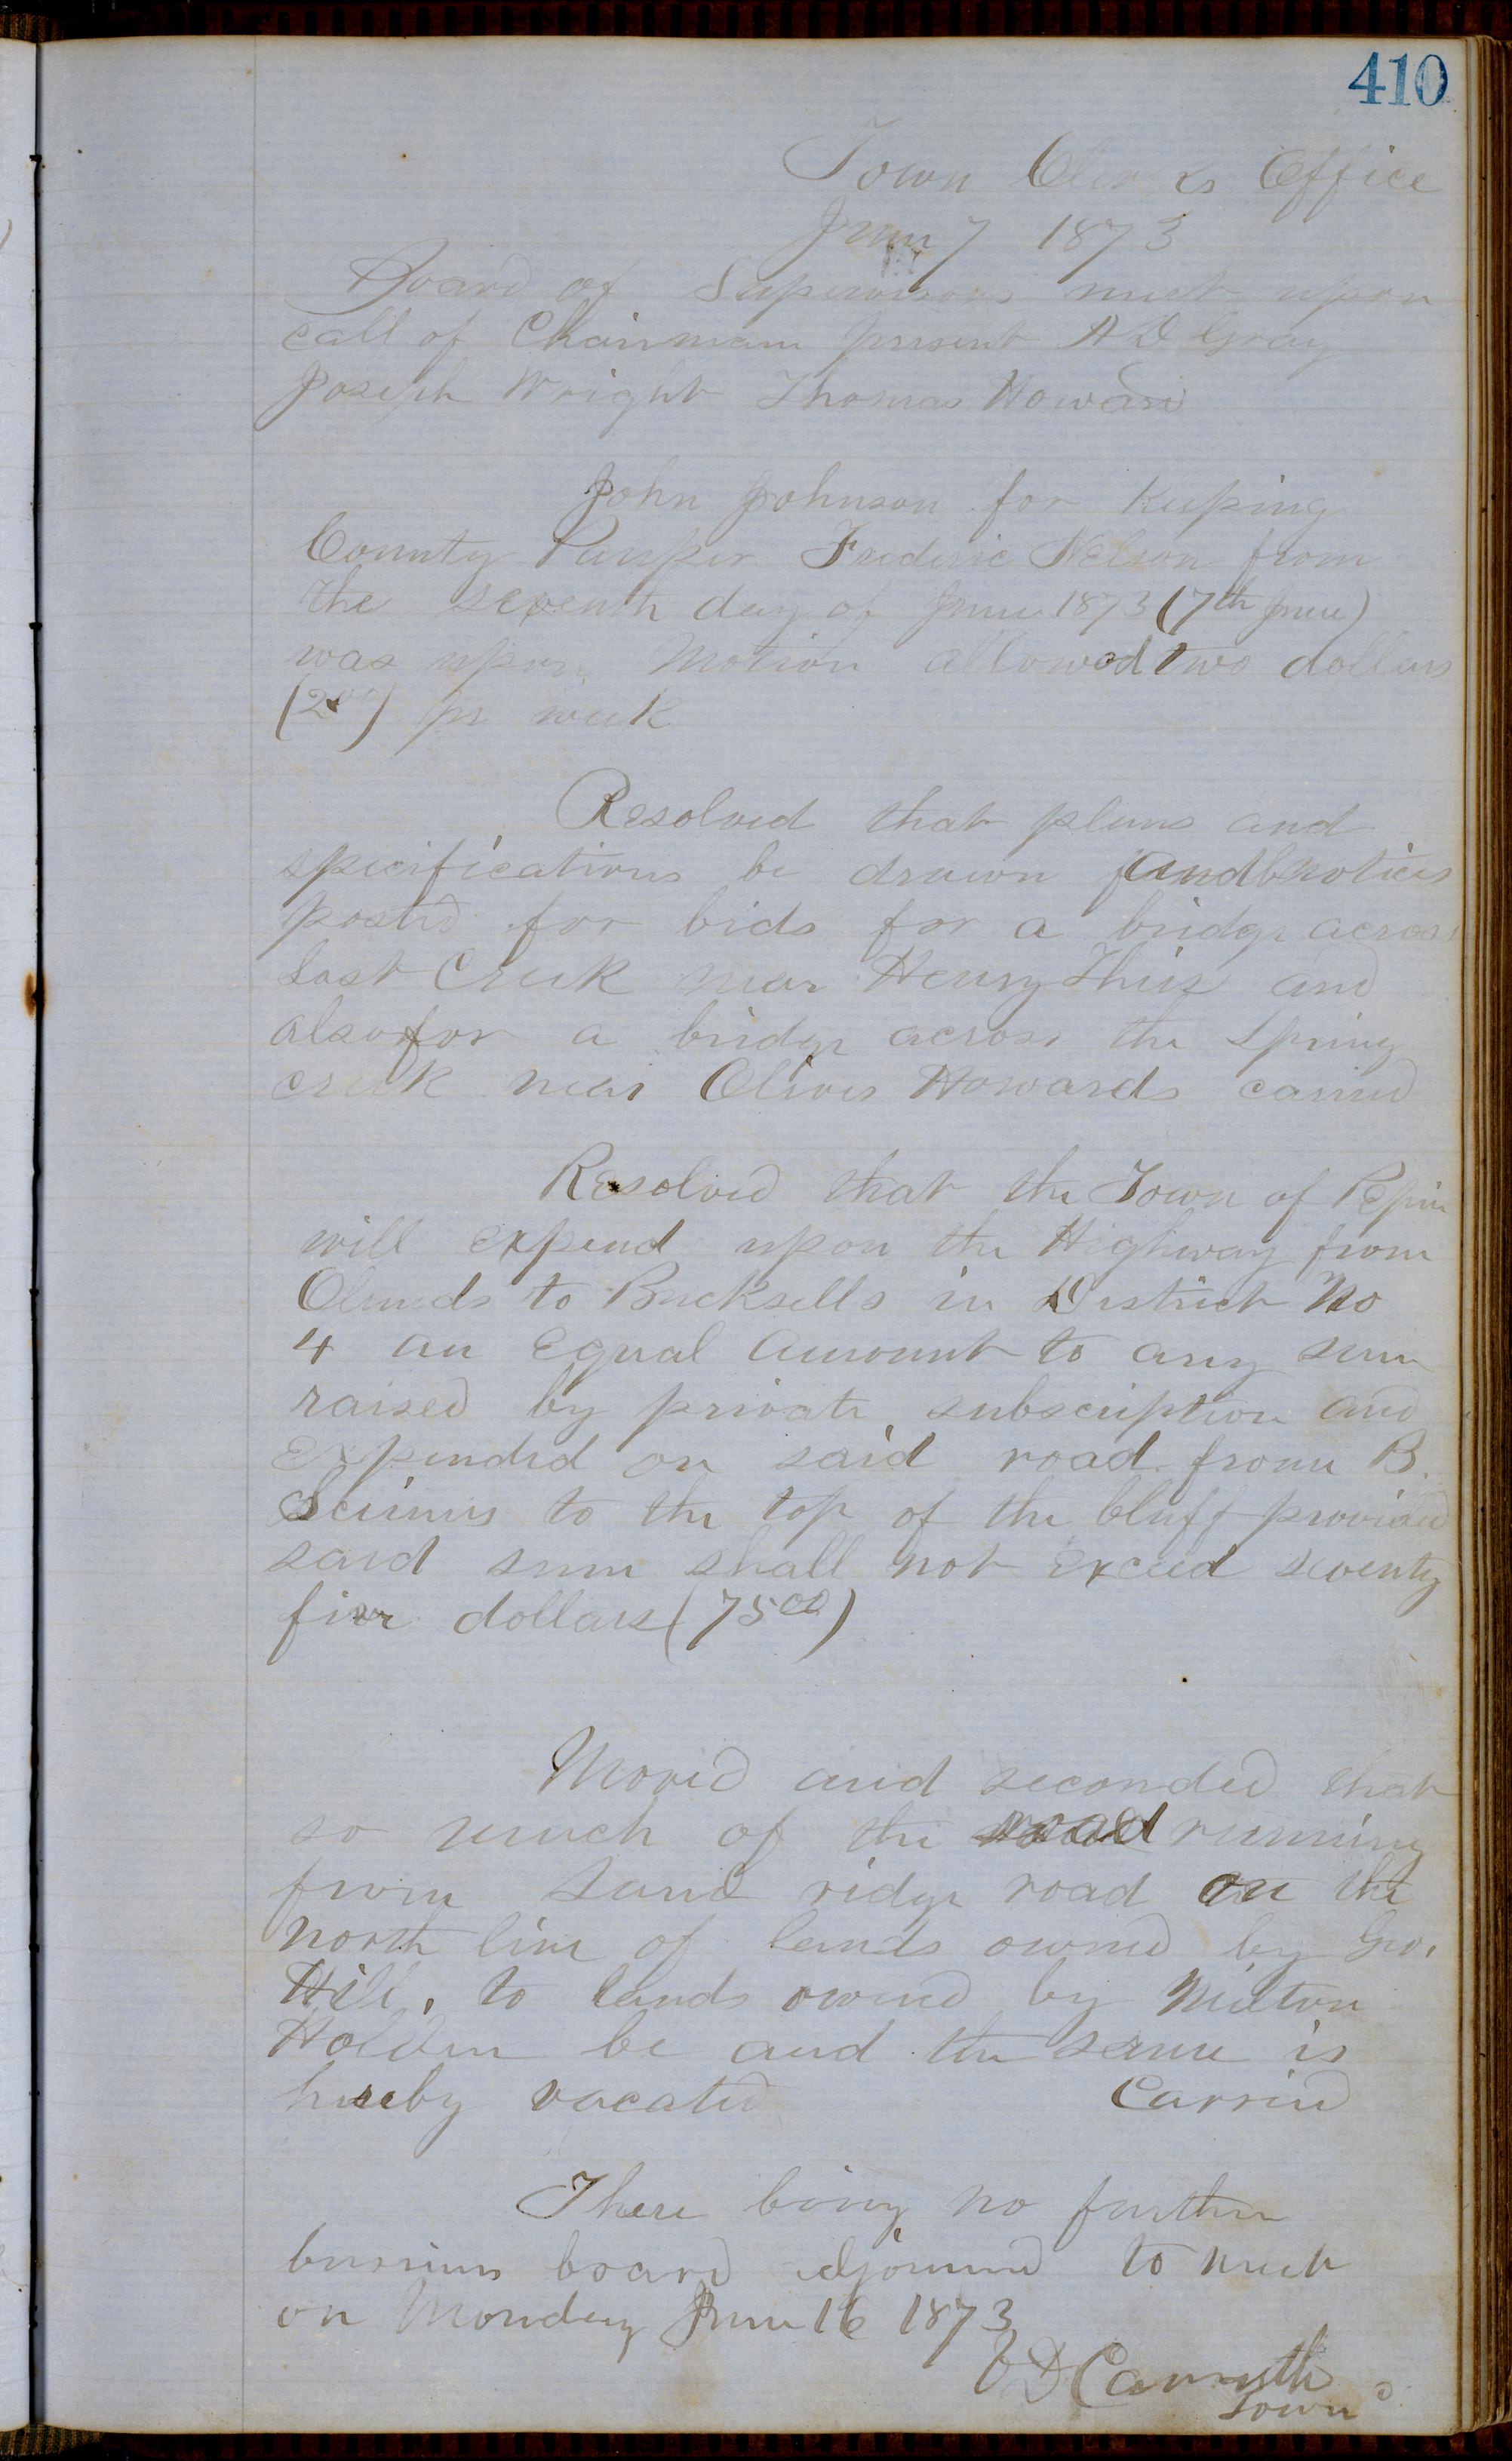 410
Town Clerks Office
June 7 1873
Board of Supervisors meet upon
call of Chairman present A D Gray
Joseph Wright Thomas Howard
John Johnson for Keeping
County Pauper Frederic Nelson from
the seventh day of June 1873 (7th June)
was upon Motion allowed two dollars
(200) pr week
Resolved that plans and
specifications be drawn and notices
posted for bids for a bridge across
Lost Creek near Henry This and
also for a bridge across the Spring
creek near Oliver Howards carried
Resolved that the Town of Pepin
will expend upon the Highway from
Olunds to Bucksells in District No
4 an Equal amount to any sum
raised by private subscription and
Expended on said road from B.
to the top of the bluff provided
said sum shall not Exceed seventy
five dollars (75 00)
Moved and seconded that
so much of the road running
from Sand ridge road on the
north line of lands owned by Geo.
Hill, to lands owned by Milton
Holden be and the same is
hereby vacated Carried
There being no further
business board adjourned to meet
on Monday June 16 1873
D Carruth
Town